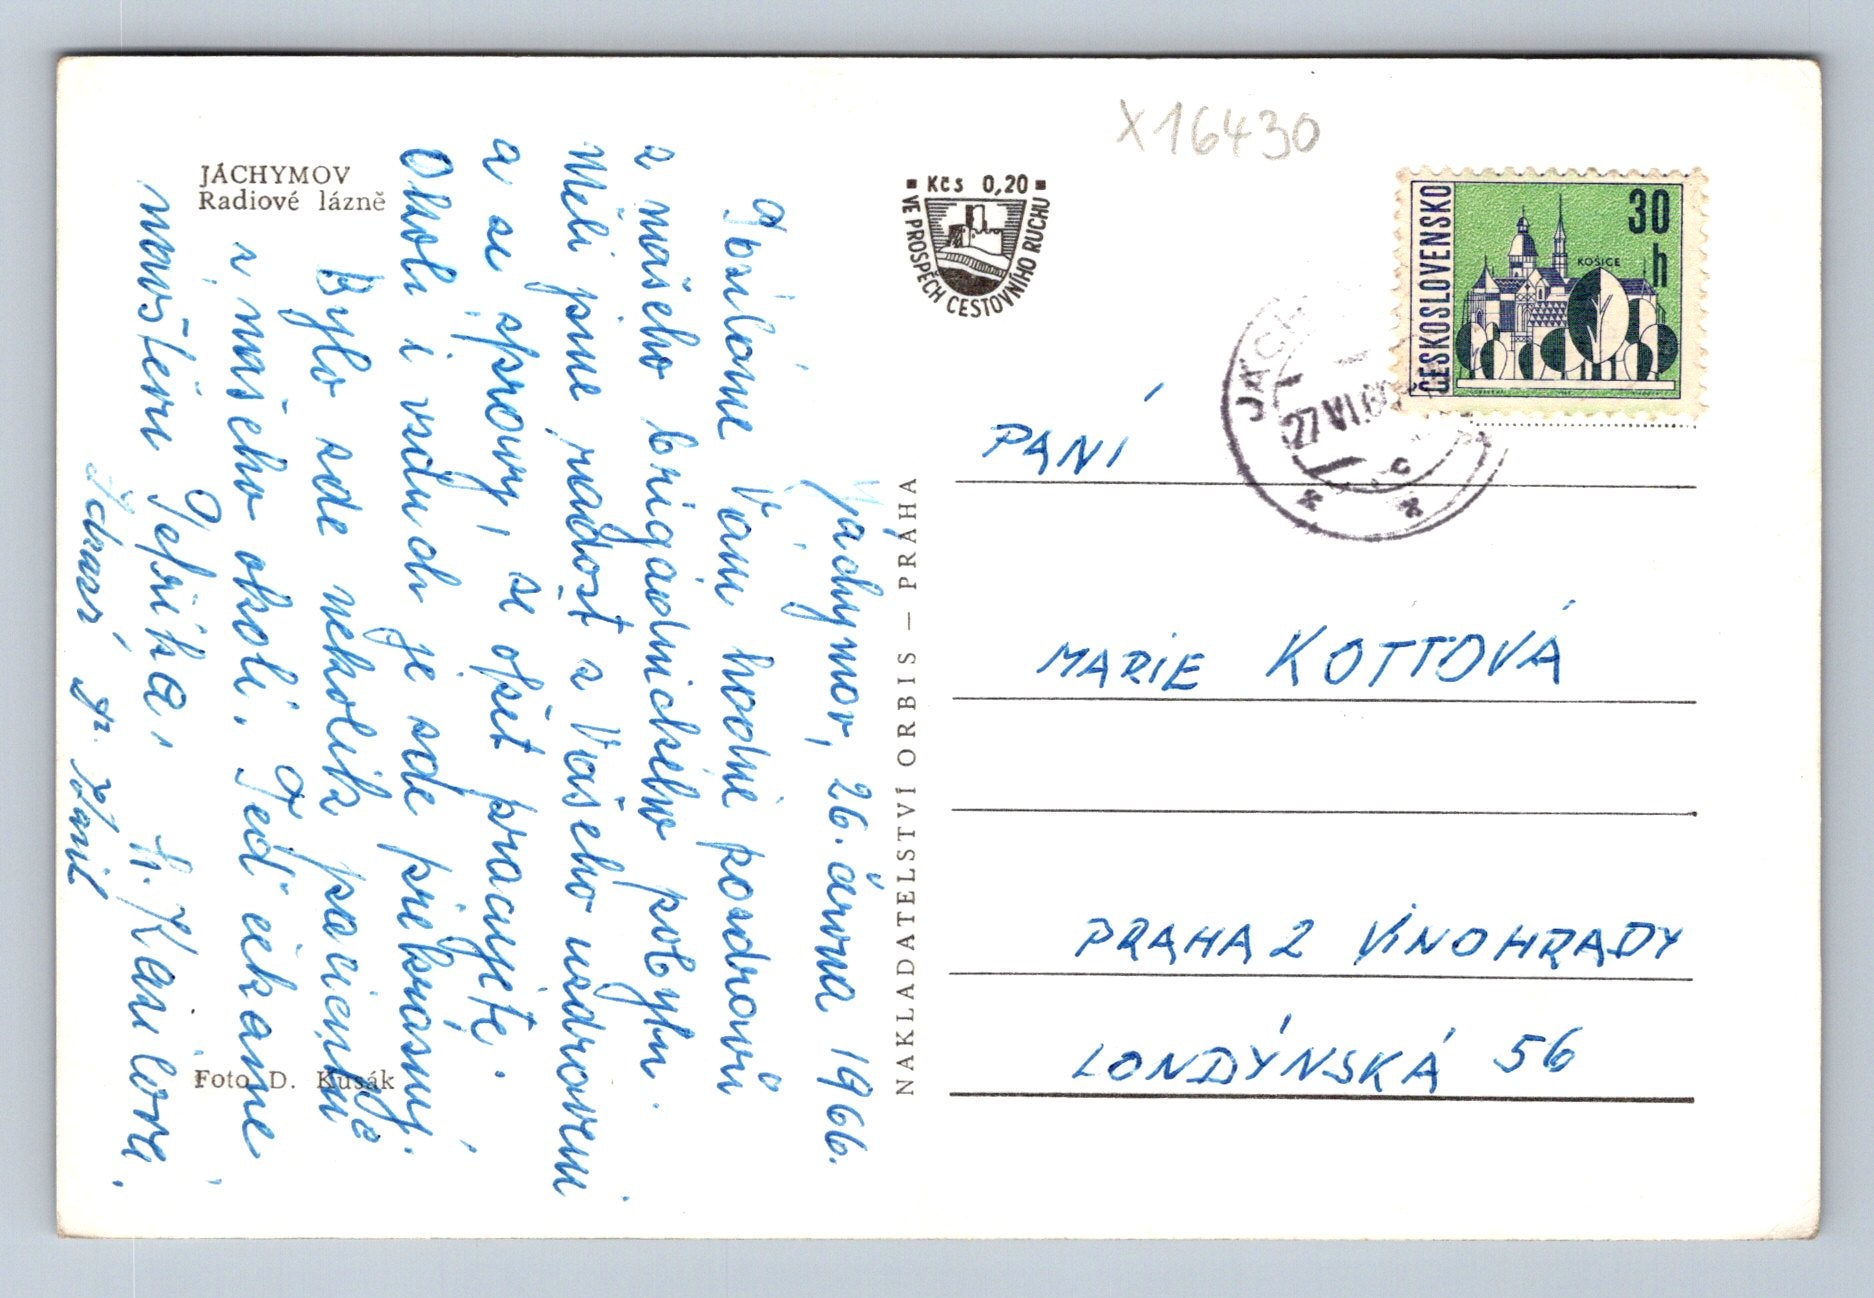 X16430
JÁCHYMOV
Radiové lázně
Kčs 0,20
VE PROSPĚCH CESTOVNÍHO RUCHU
ČESKOSLOVENSKO
30
h
KOŠICE
27 VI. 66
Jáchymov, 26. června 1966.
Posíláme Vám hodně pozdravů
z našeho brigádnického pobytu.
Měli jsme radost z Vašeho uzdravení
a ze zprávy, že opět pracujete.
Okolí i vzduch je zde překrásný.
Bylo zde několik pacientů
z našeho okolí. Teď čekáme
návštěvu
Kamil
NAKLADATELSTVÍ ORBIS — PRAHA
Foto D. Kusák
PANÍ
MARIE KOTTOVÁ
PRAHA 2 VINOHRADY
LONDÝNSKÁ 56